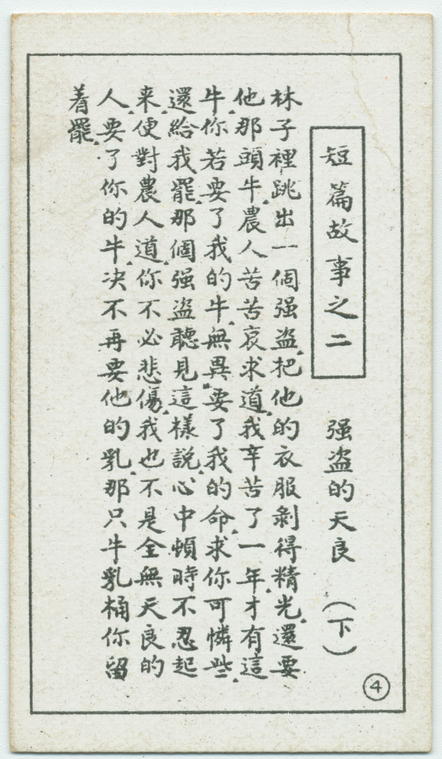 短篇故事之二
强盗的天良
(下)
林子裡跳出一個强盗、把他的衣服剝得精光、還要
他那頭牛、農人苦苦哀求道、我辛苦了一年、才有這
牛、你若要了我的牛、無異要了我的命、求你可憐些、
還給我罷、那個强盗聽見這樣說、心中頓時不忍起
来、便對農人道、你不必悲傷、我也不是全無天良的
人、要了你的牛、决不再要他的乳、那只牛乳桶你留
着罷、
4